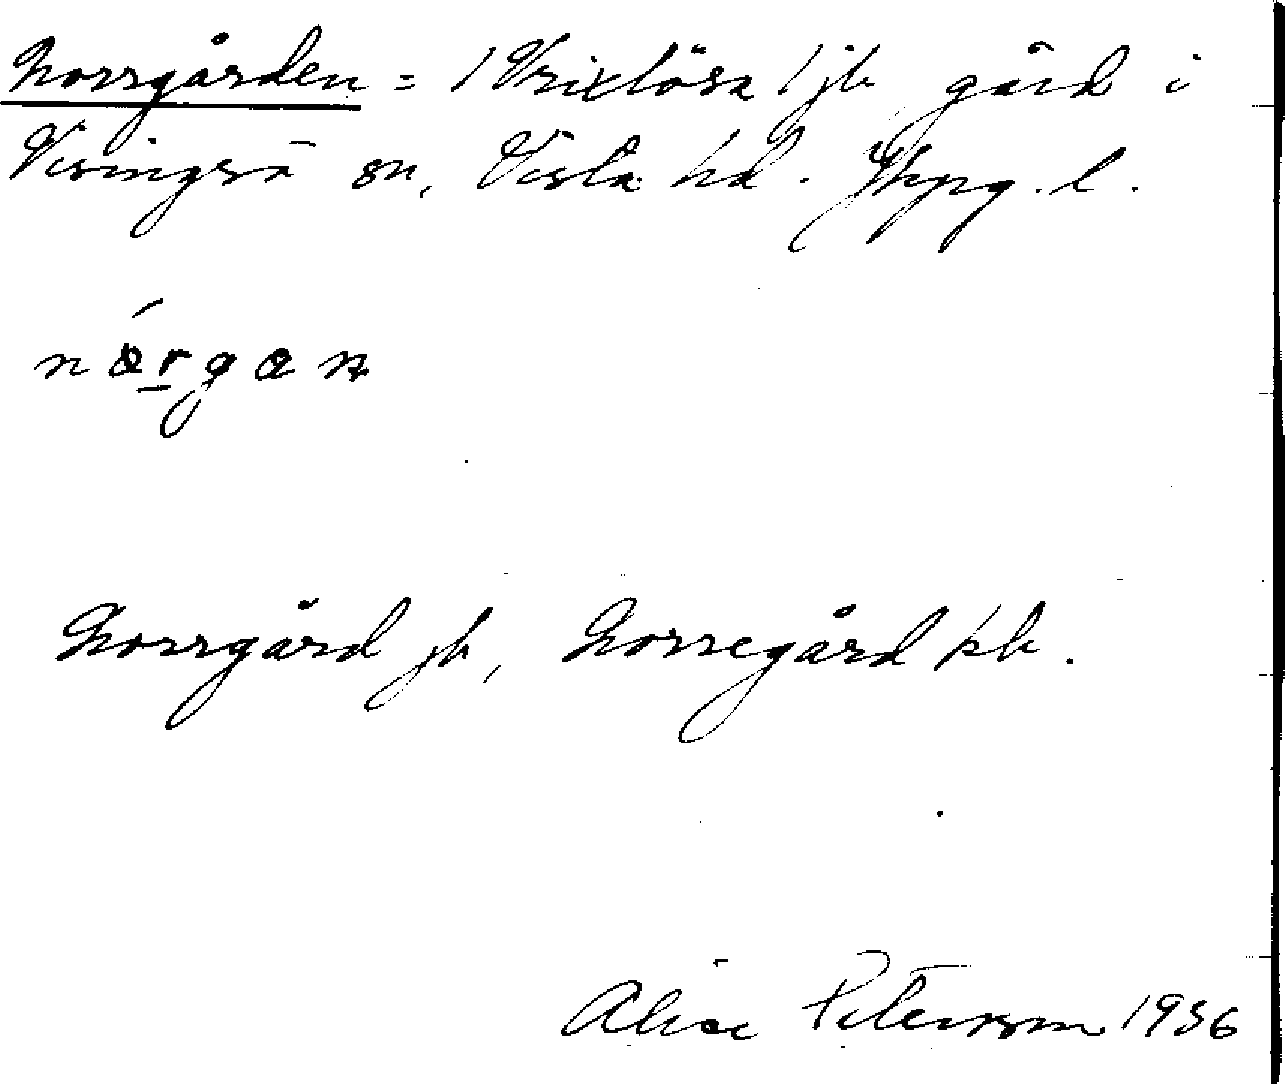 Norrgården = 1 Vrixlösa 1 jb gård i
Visingsö sn, Vista hd. Jkpg. l.
Norrgård jb, Norregård kb.
Alice Peterson 1936